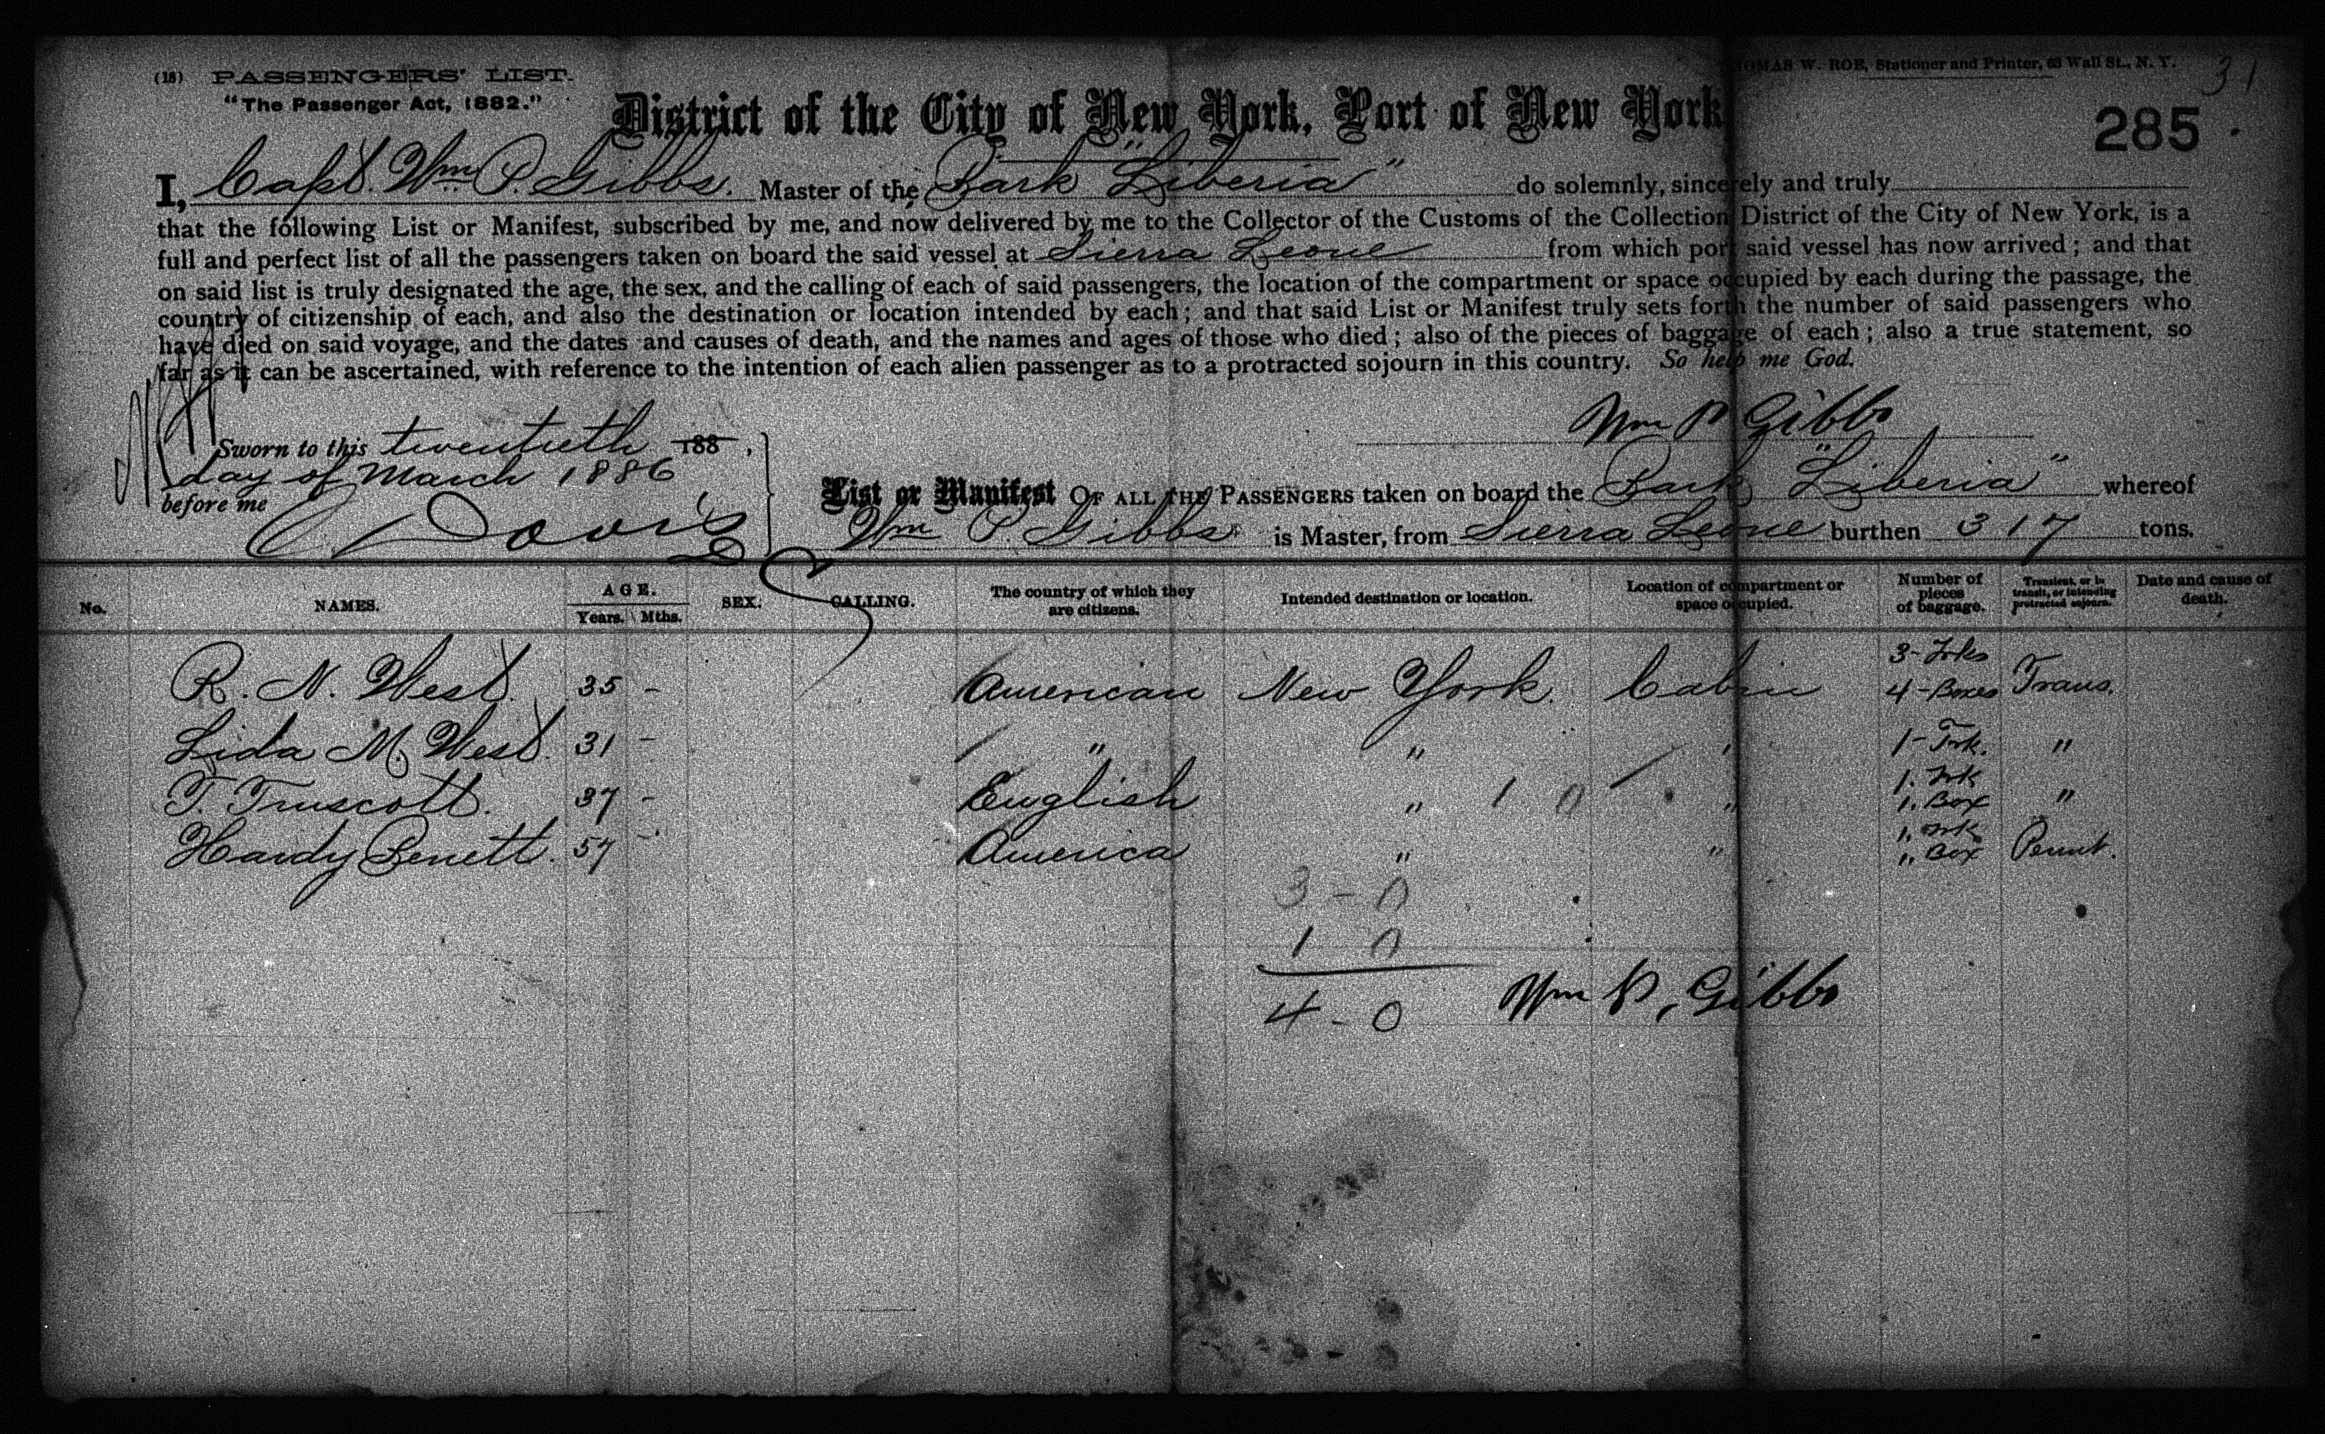 (18) PASSENGERS' LIST.
"The Passenger Act, 1882."
THOMAS W. ROE, Stationer and Printer, 63 Wall St., N. Y.
31
District of the City of New York, Port of New York
285
I, Capt. Wm. P. Gibbs. Master of the Bark "Liberia" do solemnly, sincerely and truly
that the following List or Manifest, subscribed by me, and now delivered by me to the Collector of the Customs of the Collection District of the City of New York, is a
full and perfect list of all the passengers taken on board the said vessel at Sierra Leone from which port said vessel has now arrived; and that
on said list is truly designated the age, the sex, and the calling of each of said passengers, the location of the compartment or space occupied by each during the passage, the
country of citizenship of each, and also the destination or location intended by each; and that said List or Manifest truly sets forth the number of said passengers who
have died on said voyage, and the dates and causes of death, and the names and ages of those who died; also of the pieces of baggage of each; also a true statement, so
far as it can be ascertained, with reference to the intention of each alien passenger as to a protracted sojourn in this country. So help me God.
Wm P Gibbs
Sworn to this twentieth 188 ,
day of March 1886
before me
Davis
List or Manifest OF ALL THE PASSENGERS taken on board the Bark "Liberia" whereof
Wm P. Gibbs is Master, from Sierra Leone burthen 317 tons.
No. NAMES. AGE. Years. Mths. SEX. CALLING. The country of which they are citizens. Intended destination or location. Location of compartment or space occupied. Number of pieces of baggage. Transient, or in transit, or intending protracted sojourn. Date and cause of death.
R. N. West. 35 - American New York. Cabin 3-Trks 4-Boxes Trans.
Lida M. West. 31 - " " " 1-Trk. "
T. Truscott. 37 - English " 1 0 " 1. Trk 1. Box "
Hardy 57 - America " " 1. Trk 1. Box Permt.
3 - 0
1 0
4 - 0
Wm P. Gibbs